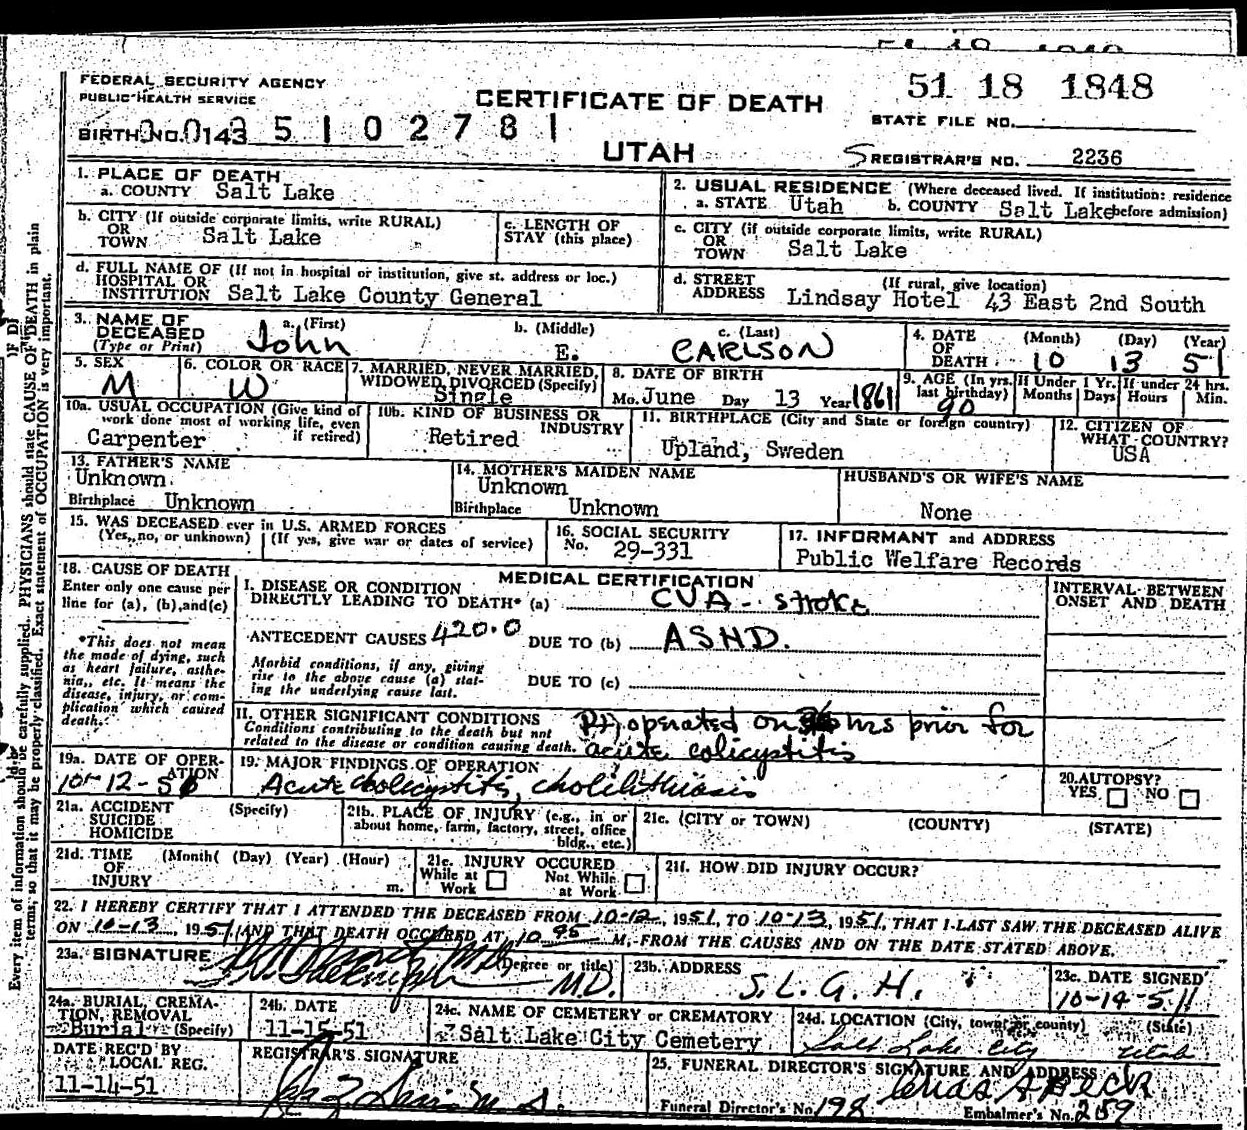 FEDERAL SECURITY AGENCY
PUBLIC HEALTH SERVICE
CERTIFICATE OF DEATH
51 18 1848
STATE FILE NO.
BIRTH NO. 0143 5102781
UTAH
REGISTRAR'S NO. 2236
1. PLACE OF DEATH
a. COUNTY Salt Lake
2. USUAL RESIDENCE (Where deceased lived. If institution: residence
a. STATE Utah b. COUNTY Salt Lake before admission)
b. CITY (If outside corporate limits, write RURAL)
OR
TOWN Salt Lake
c. LENGTH OF
STAY (this place)
c. CITY (if outside corporate limits, write RURAL)
OR
TOWN Salt Lake
d. FULL NAME OF (If not in hospital or institution, give st. address or loc.)
HOSPITAL OR
INSTITUTION Salt Lake County General
d. STREET (If rural, give location)
ADDRESS Lindsay Hotel 43 East 2nd South
3. NAME OF
DECEASED
(Type or Print)
a. (First) b. (Middle) c. (Last)
John E. CARLSON
4. DATE
OF
DEATH
(Month) (Day) (Year)
10 13 51
5. SEX
M
6. COLOR OR RACE
W
7. MARRIED, NEVER MARRIED,
WIDOWED, DIVORCED (Specify)
Single
8. DATE OF BIRTH
Mo. June Day 13 Year 1861
9. AGE (In yrs.
last birthday)
90
If Under 1 Yr.
Months Days
If under 24 hrs.
Hours Min.
10a. USUAL OCCUPATION (Give kind of
work done most of working life, even
if retired)
Carpenter
10b. KIND OF BUSINESS OR
INDUSTRY
Retired
11. BIRTHPLACE (City and State or foreign country)
Upland, Sweden
12. CITIZEN OF
WHAT COUNTRY?
USA
13. FATHER'S NAME
Unknown
Birthplace Unknown
14. MOTHER'S MAIDEN NAME
Unknown
Birthplace Unknown
HUSBAND'S OR WIFE'S NAME
None
15. WAS DECEASED ever in U.S. ARMED FORCES
(Yes, no, or unknown) (If yes, give war or dates of service)
16. SOCIAL SECURITY
No. 29-331
17. INFORMANT and ADDRESS
Public Welfare Records
18. CAUSE OF DEATH
Enter only one cause per
line for (a), (b), and (c)
*This does not mean
the mode of dying, such
as heart failure, asthe-
nia, etc. It means the
disease, injury, or com-
plication which caused
death.
MEDICAL CERTIFICATION
I. DISEASE OR CONDITION
DIRECTLY LEADING TO DEATH* (a) CVA - stroke
ANTECEDENT CAUSES 420.0 DUE TO (b) ASHD.
Morbid conditions, if any, giving
rise to the above cause (a) stat-
ing the underlying cause last.
DUE TO (c)
INTERVAL BETWEEN
ONSET AND DEATH
II. OTHER SIGNIFICANT CONDITIONS
Conditions contributing to the death but not
related to the disease or condition causing death.
operated on hrs prior for
acute colicystitis
19a. DATE OF OPER-
ATION
10-12-51
19. MAJOR FINDINGS OF OPERATION
Acute cholecystitis, cholelithiasis
20. AUTOPSY?
YES NO
21a. ACCIDENT (Specify)
SUICIDE
HOMICIDE
21b. PLACE OF INJURY (e.g., in or
about home, farm, factory, street, office
bldg., etc.)
21c. (CITY or TOWN) (COUNTY) (STATE)
21d. TIME (Month( (Day) (Year) (Hour)
OF
INJURY m.
21e. INJURY OCCURED
While at Not While
Work at Work
21f. HOW DID INJURY OCCUR?
22. I HEREBY CERTIFY THAT I ATTENDED THE DECEASED FROM 10-12, 1951, TO 10-13, 1951, THAT I LAST SAW THE DECEASED ALIVE
ON 10-13, 1951, AND THAT DEATH OCCURED AT 10 95 M, FROM THE CAUSES AND ON THE DATE STATED ABOVE.
23a. SIGNATURE (Degree or title)
M.D.
23b. ADDRESS
S. L. G. H.
23c. DATE SIGNED
10-14-51
24a. BURIAL, CREMA-
TION, REMOVAL
Burial (Specify)
24b. DATE
11-15-51
24c. NAME OF CEMETERY or CREMATORY
Salt Lake City Cemetery
24d. LOCATION (City, town, or county) (State)
Salt Lake City Utah
DATE REC'D BY
LOCAL REG.
11-14-51
REGISTRAR'S SIGNATURE
25. FUNERAL DIRECTOR'S SIGNATURE AND ADDRESS
Beck
Funeral Director's No. 198 Embalmer's No. 259
Every item of information should be carefully supplied. PHYSICIANS should state CAUSE OF DEATH in plain
terms, so that it may be properly classified. Exact statement of OCCUPATION is very important.